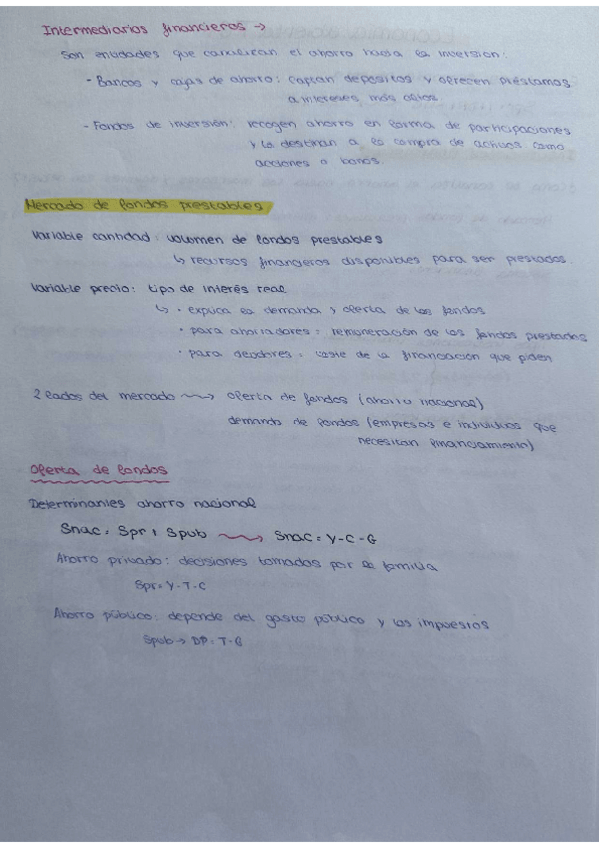 Intermediarios financieros →
Son entidades que canalizan el ahorro hacia la inversion:
- Bancos y cajas de ahorro: captan depositos y ofrecen préstamos
a intereses más altos.
- Fondos de inversión: recogen ahorro en forma de participaciones
y lo destinan a la compra de activos como
acciones o bonos.
Mercado de fondos prestables
Variable cantidad: volumen de fondos prestables
↳ recursos financieros disponibles para ser prestados.
Variable precio: tipo de interés real
↳ · explica la demanda y oferta de los fondos
· para ahorradores: remuneración de los fondos prestados
· para deudores: coste de la financiación que piden
2 lados del mercado ⟿ oferta de fondos (ahorro nacional)
demanda de fondos (empresas e individuos que
necesitan financiamiento)
Oferta de fondos
Determinantes ahorro nacional
Snac = Spr + Spub ⟿ Snac = Y-C-G
Ahorro privado: decisiones tomadas por la familia
Spr = Y-T-C
Ahorro público: depende del gasto público y los impuestos
Spub → DP = T-G